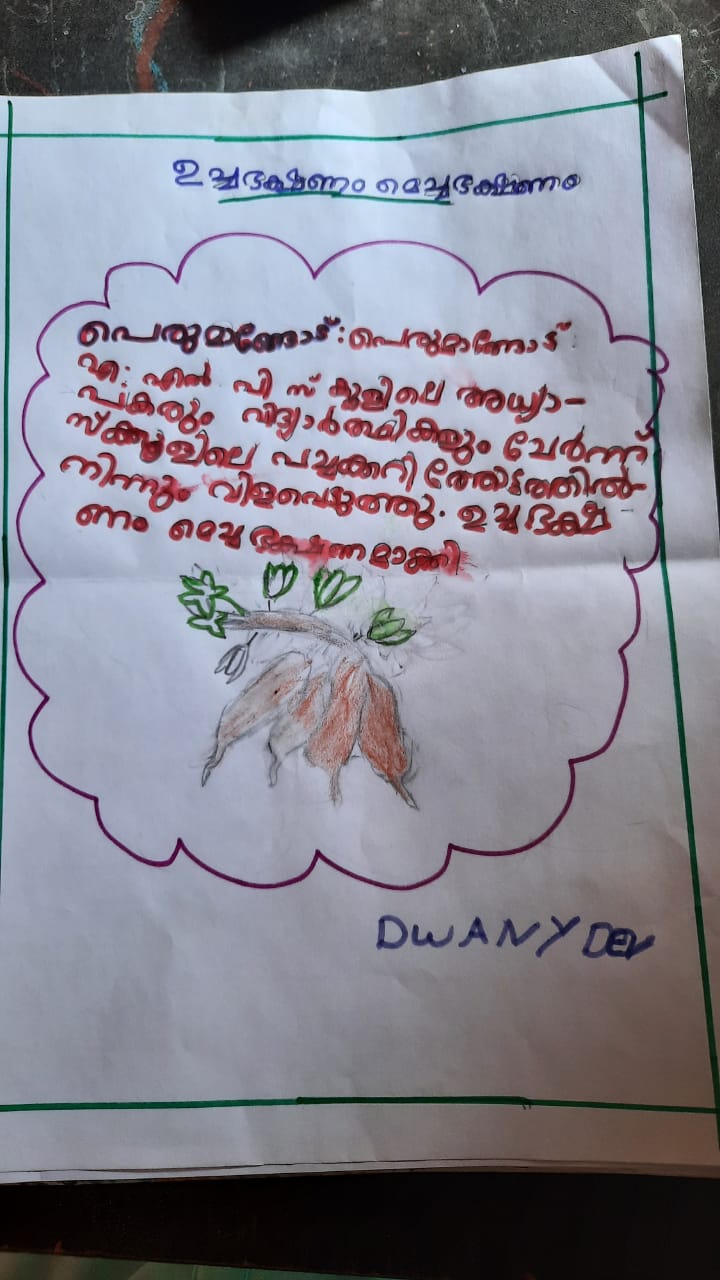 ഉച്ചഭക്ഷണം മെച്ചഭക്ഷണം
പെരുമാങ്ങോട്: പെരുമാങ്ങോട്
എ: എൽ പി സ് കൂളിലെ അധ്യാ-
പകരും വിദ്യാർത്ഥികളും ചേർന്ന്
സ്ക്കൂളിലെ പച്ചക്കറി ത്തോട്ടത്തിൽ-
നിന്നും വിളപ്പെടുത്തു. ഉച്ചഭക്ഷ-
ണം മെച്ച ഭക്ഷണമാക്കി
DWANY DEV